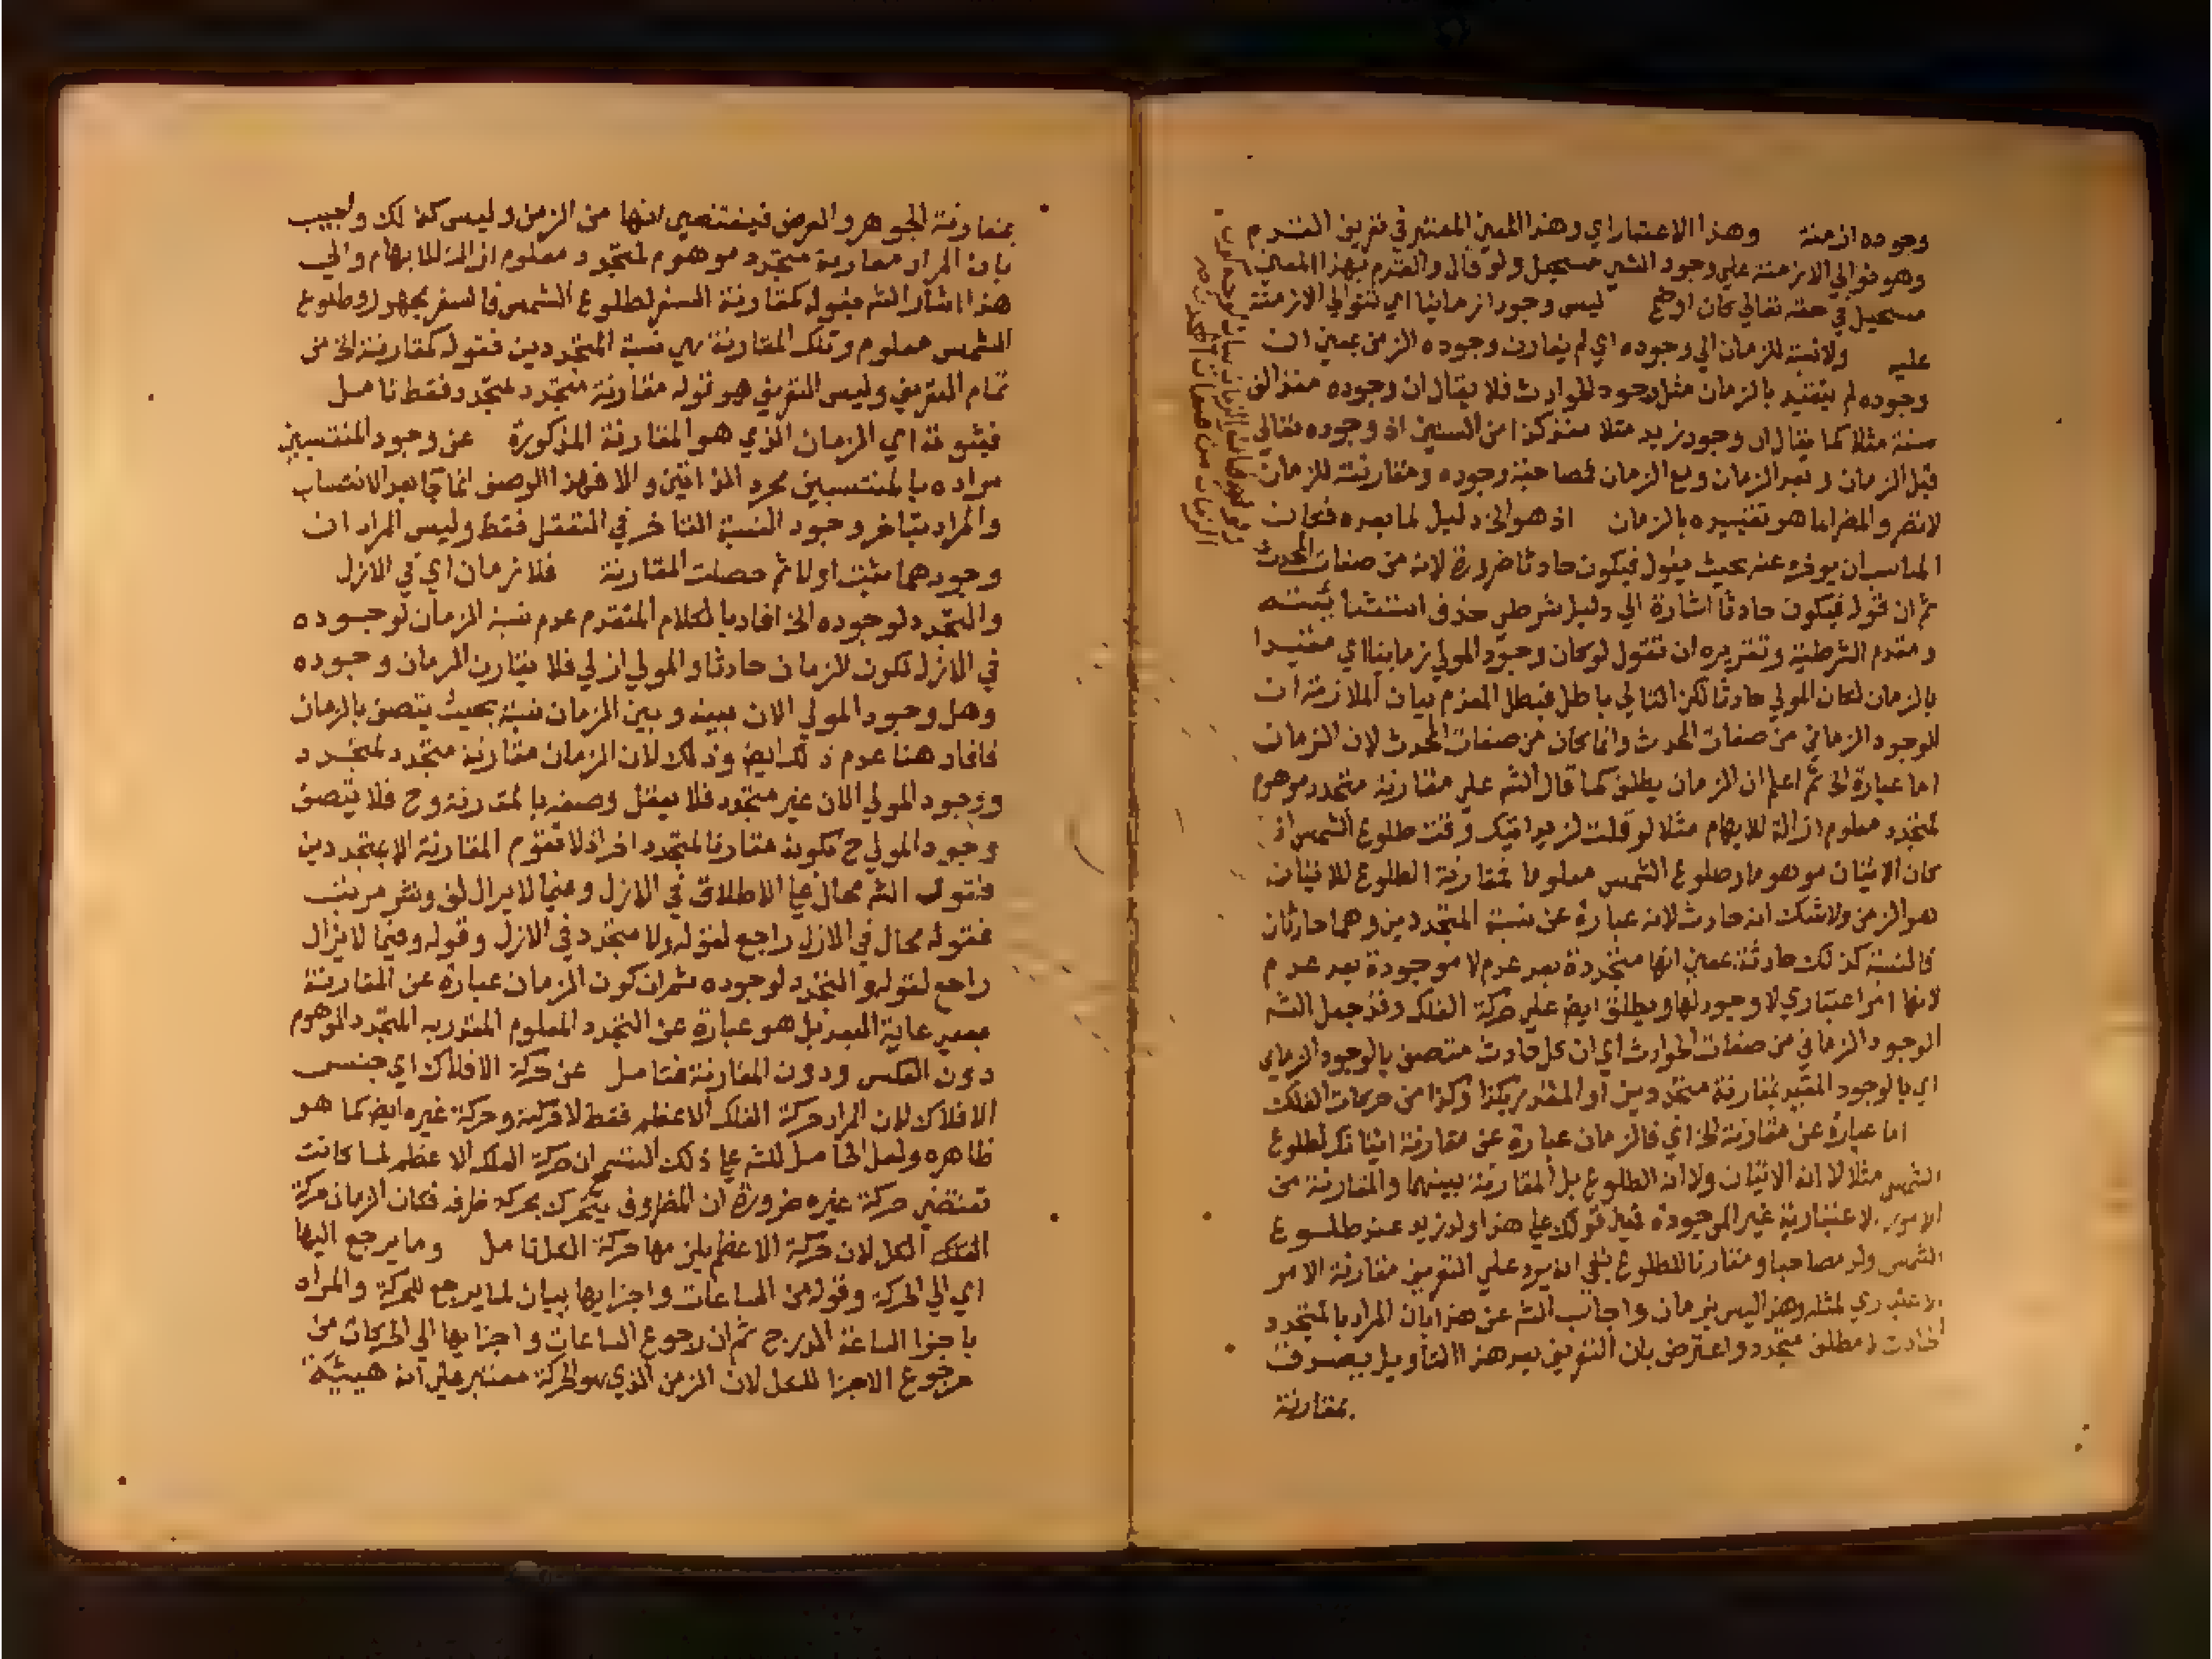 وجوده ازمنة وهذا الاعتبار اي وهذا المعني المعتبر في تعريف القدم
وهو توالي الازمنة علي وجود الشي مستحيل ولو قال والقدم بهذا المعني
مستحيل في حقه تعالي كان اوضح ليس وجود ازمانيا اي تتوالي الازمنة
عليه ولا نسبة للزمان الي وجوده اي لم يقارن وجوده الزمن بمعني ان
وجوده لم يتقيد بالزمان مثل وجود الحوادث فلا يقال ان وجوده منذ الف
سنة مثلا كما يقال ان وجود زيد مثلا منذ كذا من السنين اذ وجوده تعالي
قبل الزمان وبعد الزمان ومع الزمان فمصاحبة وجوده ومقارنته للزمان
لا تضر والمضر انما هو تقييده بالزمان اذ هو الخ دليل لما بعده فكان
المناسب ان يوخره عنه بحيث يقول فيكون حادثا ضرورة لانه من صفات المحدث
ثم ان قوله فيكون حادثا اشارة الي دليل شرطي حذف استثنائيته
ومقدم الشرطية وتقريره ان تقول لو كان وجود المولي زمانيا اي مقيدا
بالزمان لكان المولي حادثا لكن التالي باطل فبطل المقدم بيان الملازمة ان
الوجود الزماني من صفات المحدث وانما كان من صفات المحدث لان الزمان
اما عبارة الخ ثم اعلم ان الزمان يطلق كما قال الشه علي مقارنة متجدد موهوم
لمتجدد معلوم ازالة للايهام مثلا لو قلت لزيد اتيك وقت طلوع الشمس اذ
كان الاتيان موهوما وطلوع الشمس معلوما فمقارنة الطلوع للاتيان
هو الزمن ولا شك انه حادث لانه عبارة عن نسبة المتجددين وهما حادثان
فالنسبة كذلك حادثة بمعني انها متجددة بعد عدم لا موجودة بعد عدم
لانها امر اعتباري لا وجود لها ويطلق ايض علي حركة الفلك وقد جعل الشه
الوجود الزماني من صفات الحوادث اي ان كل حادث متصف بالوجود الزماني
اي بالوجود المقيد بمقارنة متجددين او المقدر بكذا وكذا من حركات الفلك
اما عبارة عن مقارنة الخ اي فالزمان عبارة عن مقارنة اتيانك لطلوع
الشمس مثلا لا انه الاتيان ولا انه الطلوع بل المقارنة بينهما والمقارنة من
الامور الاعتبارية غير الموجودة قيل قولك علي هذا ولد زيد عند طلوع
الشمس ولد مصاحبا ومقارنا للطلوع بقي انه يرد علي التعريف مقارنة الامر
الاعتباري لمثله وهذا ليس بزمان واجاب الشه عن هذا بان المراد بالمتجدد
الحادث لا مطلق متجدد واعترض بان التعريف بعد هذا التاويل يصدق
بمقارنة
بمقارنة الجوهر والعرض فيقتضي انها من الزمن وليس كذلك واجيب
بان المراد مقارنة متجدد موهوم لمتجدد معلوم ازالة للابهام والي
هذا اشار الشه بقوله كمقارنة السفر لطلوع الشمس فالسفر مجهول وطلوع
الشمس معلوم وتلك المقارنة هي نسبة المتجددين فقوله كمقارنة الخ من
تمام التعريف وليس التعريف هو قوله مقارنة متجدد لمتجدد فقط تامل
فيتوقف اي الزمان الذي هو المقارنة المذكورة عن وجود المنتسبين
مراده بالمنتسبين مجرد الذاتين والا فهذا الوصف انما جا بعد الانتساب
والمراد بتاخر وجود النسبة التاخر في التعقل فقط وليس المراد ان
وجودهما يثبت اولا ثم حصلت المقارنة فلا زمان اي في الازل
والتجدد لوجوده الخ افاد بالكلام المتقدم عدم نسبة الزمان لوجوده
في الازل لكون الزمان حادثا والمولي ازلي فلا يقارن الزمان وجوده
وهل وجود المولي الان بينه وبين الزمان نسبة بحيث يتصف بالزمان
فافاد هنا عدم ذلك ايض وذلك لان الزمان مقارنة متجدد لمتجدد
ووجود المولي الان غير متجدد فلا يعقل وصفه بالمقارنة وح فلا يتصف
وجود المولي ح بكونه مقارنا لمتجدد اخر اذ لا تقوم المقارنة الا بمتجددين
فقول الشه محال علي الاطلاق في الازل وفيما لا يزال لف ونشر مرتب
فقوله محال في الازل راجع لقوله ولا متجدد في الازل وقوله وفيما لا يزال
راجع لقوله والتجدد لوجوده ثم ان كون الزمان عبارة عن المقارنة
بعيد غاية البعد بل هو عبارة عن المتجدد المعلوم المقدر به المتجدد الموهوم
دون العكس ودون المقارنة فتامل عن حركة الافلاك اي جنس
الافلاك لان المراد حركة الفلك الاعظم فقط لا حركته وحركة غيره ايض كما هو
ظاهره ولعل الحامل للشه علي ذلك التقسيم ان حركة الفلك الاعظم لما كانت
تقتضي حركة غيره ضرورة ان المظروف يتحرك بحركة ظرفه فكان الزمان حركة
الفلك الكل لان حركة الاعظم يلزمها حركة الكل تامل وما يرجع اليها
اي الي الحركة وقوله من الساعات واجزايها بيان لما يرجع للحركة والمراد
باجزا الساعة الدرج ثم ان رجوع الساعات واجزايها الي الحركات من
رجوع الاجزا للكل لان الزمن الذي هو الحركة معتبر علي انه هيئة